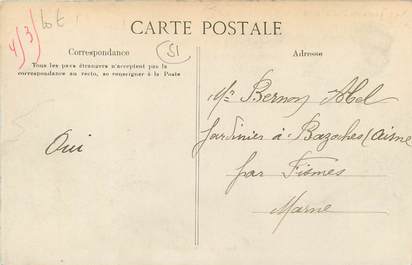 4/3/ lot
CARTE POSTALE
Correspondance
51
Adresse
Tous les pays étrangers n'acceptent pas la
correspondance au recto, se renseigner à la Poste
Mr Bernon Abel
Jardinier à Bazoches (Aisne
par Fismes
Marne
Oui